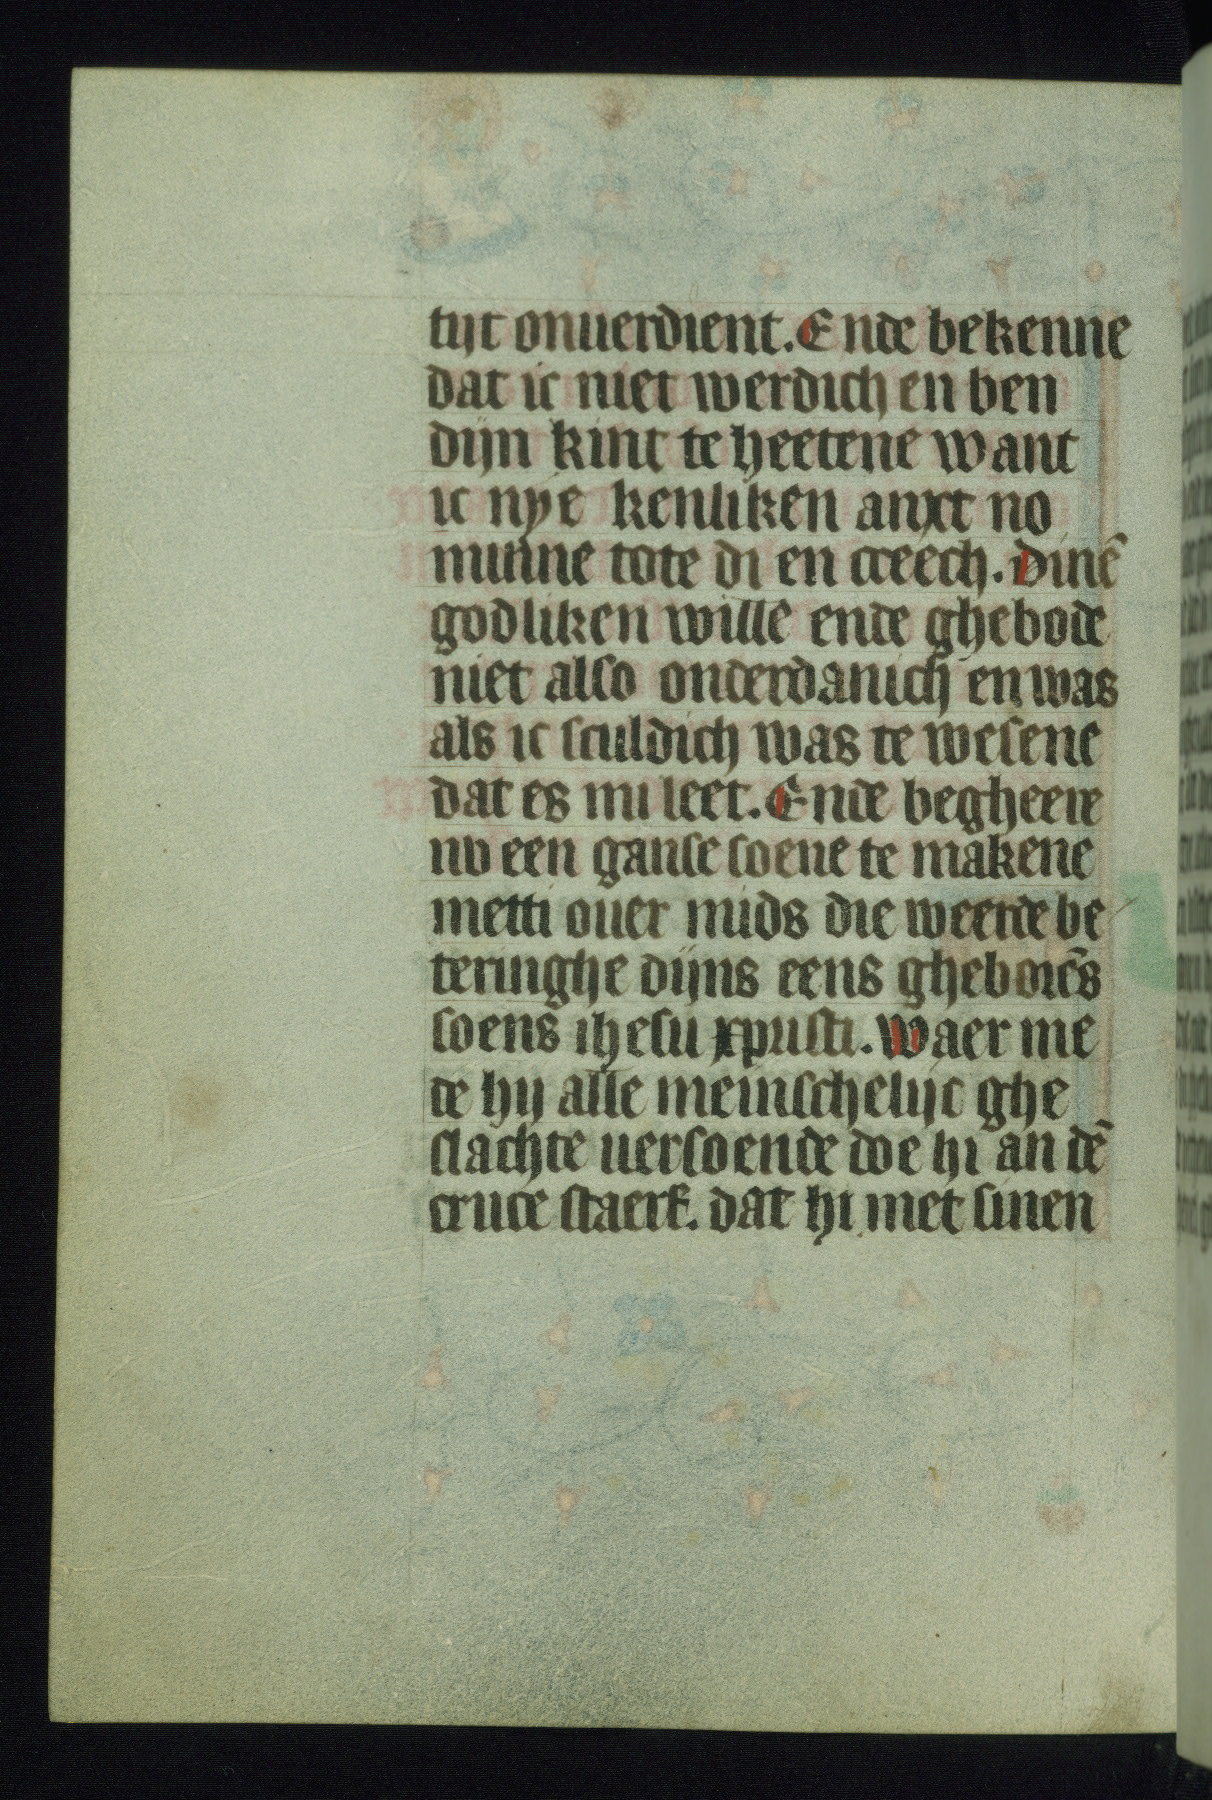 tijt onuerdient. Ende bekenne
dat ic niet werdich en ben
dijn kint te heetene want
ic nye kenliken anxt no
minne tote di en creech. Dinē
godliken wille ende ghebode
niet also onderdanich en was
als ic sculdich was te wesene
dat es mi leet. Ende begheere
nv een ganse soene te makene
metti ouer mids die weerde be
teringhe dijns eens gheborēs
soens ihesu xpristi. Waer me
de hij alle meinschelijc ghe
slachte uersoende doe hi an dē
cruce staerf. dat hi met sinen